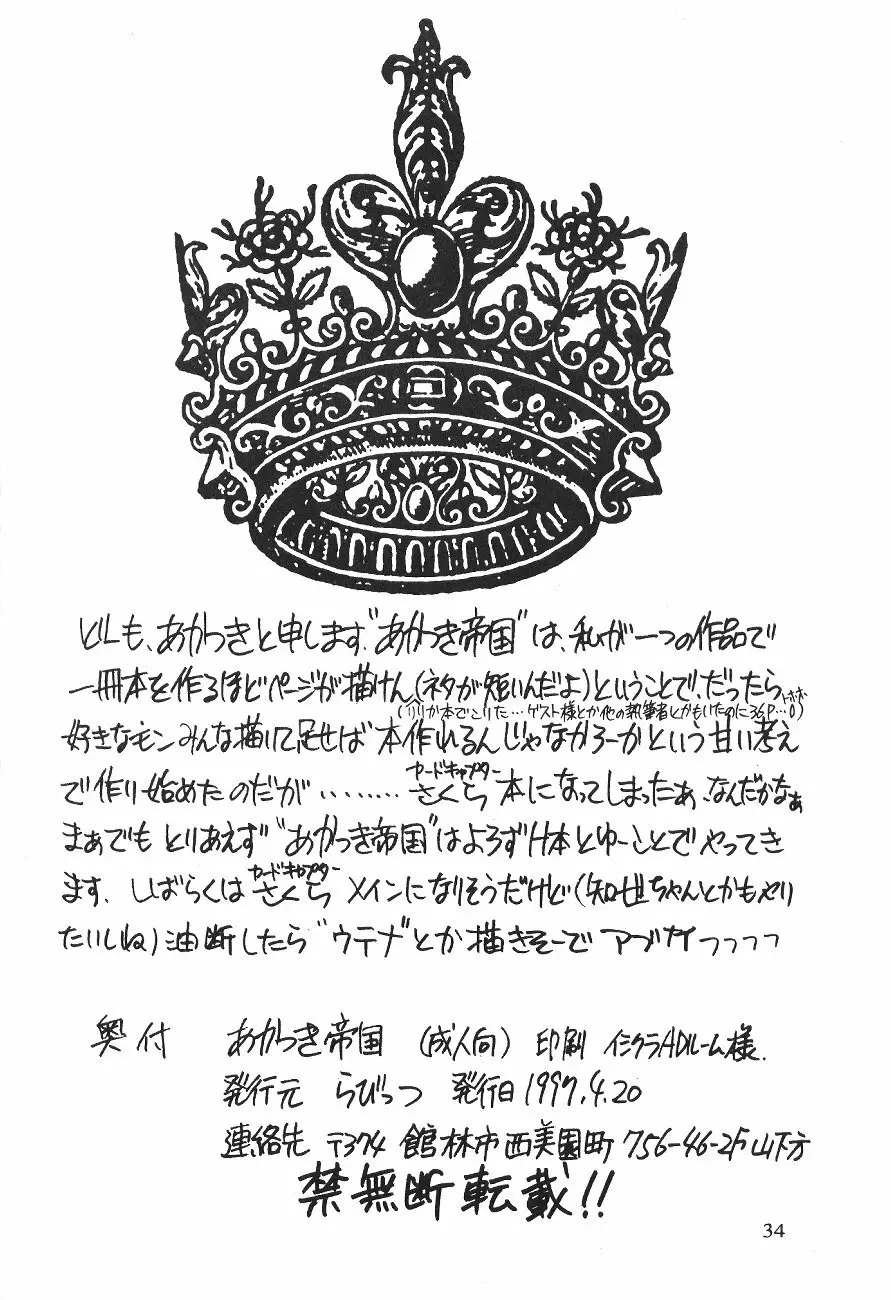 どーも、あかつきと申します。"あかつき帝国"は、私が一つの作品で
一冊本を作るほどページが描けん(ネタが短いんだよ)ということで、だったら
(リリカ本でこりた…ゲスト様とか他の執筆者とかもいたのに36P…0)トホホ
好きなモンみんな描いて足せば 本作れるんじゃなかろーかという甘い考え
で作り始めたのだが‥‥‥‥ さくら 本になってしまったぁ、なんだかなぁ
カードキャプター
まぁでも とりあえず "あかつき帝国"はよろずH本とゆーことでやってき
ます。しばらくは さくら メインになりそうだけど(知世ちゃんとかもやり
カードキャプター
たいしね)油断したら "ウテナ"とか描きそーで アブナイっっっっ
奥付 あかつき帝国 (成人向) 印刷 イシクラADルーム様.
発行元 らびっつ 発行日 1997.4.20
連絡先 〒374 館林市西美園町 756-46-2F 山下方
禁無断転載!!
34